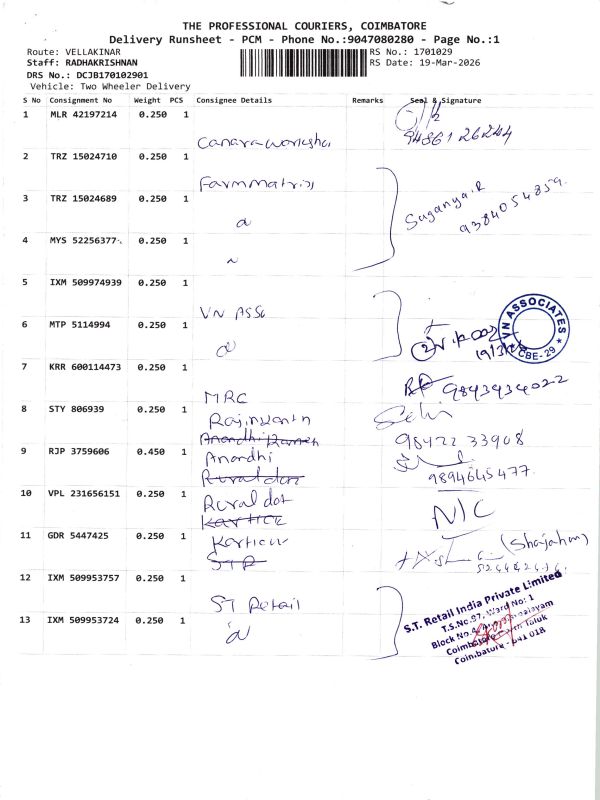 THE PROFESSIONAL COURIERS, COIMBATORE
Delivery Runsheet - PCM - Phone No.:9047080280 - Page No.:1
Route: VELLAKINAR
RS No.: 1701029
Staff: RADHAKRISHNAN
RS Date: 19-Mar-2026
DRS No.: DCJB170102901
Vehicle: Two Wheeler Delivery
S No Consignment No Weight PCS Consignee Details Remarks Seal & Signature
1 MLR 42197214 0.250 1
9486126244
2 TRZ 15024710 0.250 1
3 TRZ 15024689 0.250 1
Suganya.R
9384054859
4 MYS 52256377 0.250 1
5 IXM 509974939 0.250 1
VN ASSO
VN ASSOCIATES
CBE-29
6 MTP 5114994 0.250 1
7 KRR 600114473 0.250 1
9843434022
MRC
8 STY 806939 0.250 1
Rajinkanth
98422 33908
9 RJP 3759606 0.450 1
Anandhi
9894645477
10 VPL 231656151 0.250 1
Rural dot
N/C
11 GDR 5447425 0.250 1
Karthick
(Shajahan)
12 IXM 509953757 0.250 1
ST Retail
S.T. Retail India Private Limited
T.S.No.97, Ward No: 1
Block No.4
Coimbatore North Taluk
Coimbatore - 641 018
13 IXM 509953724 0.250 1